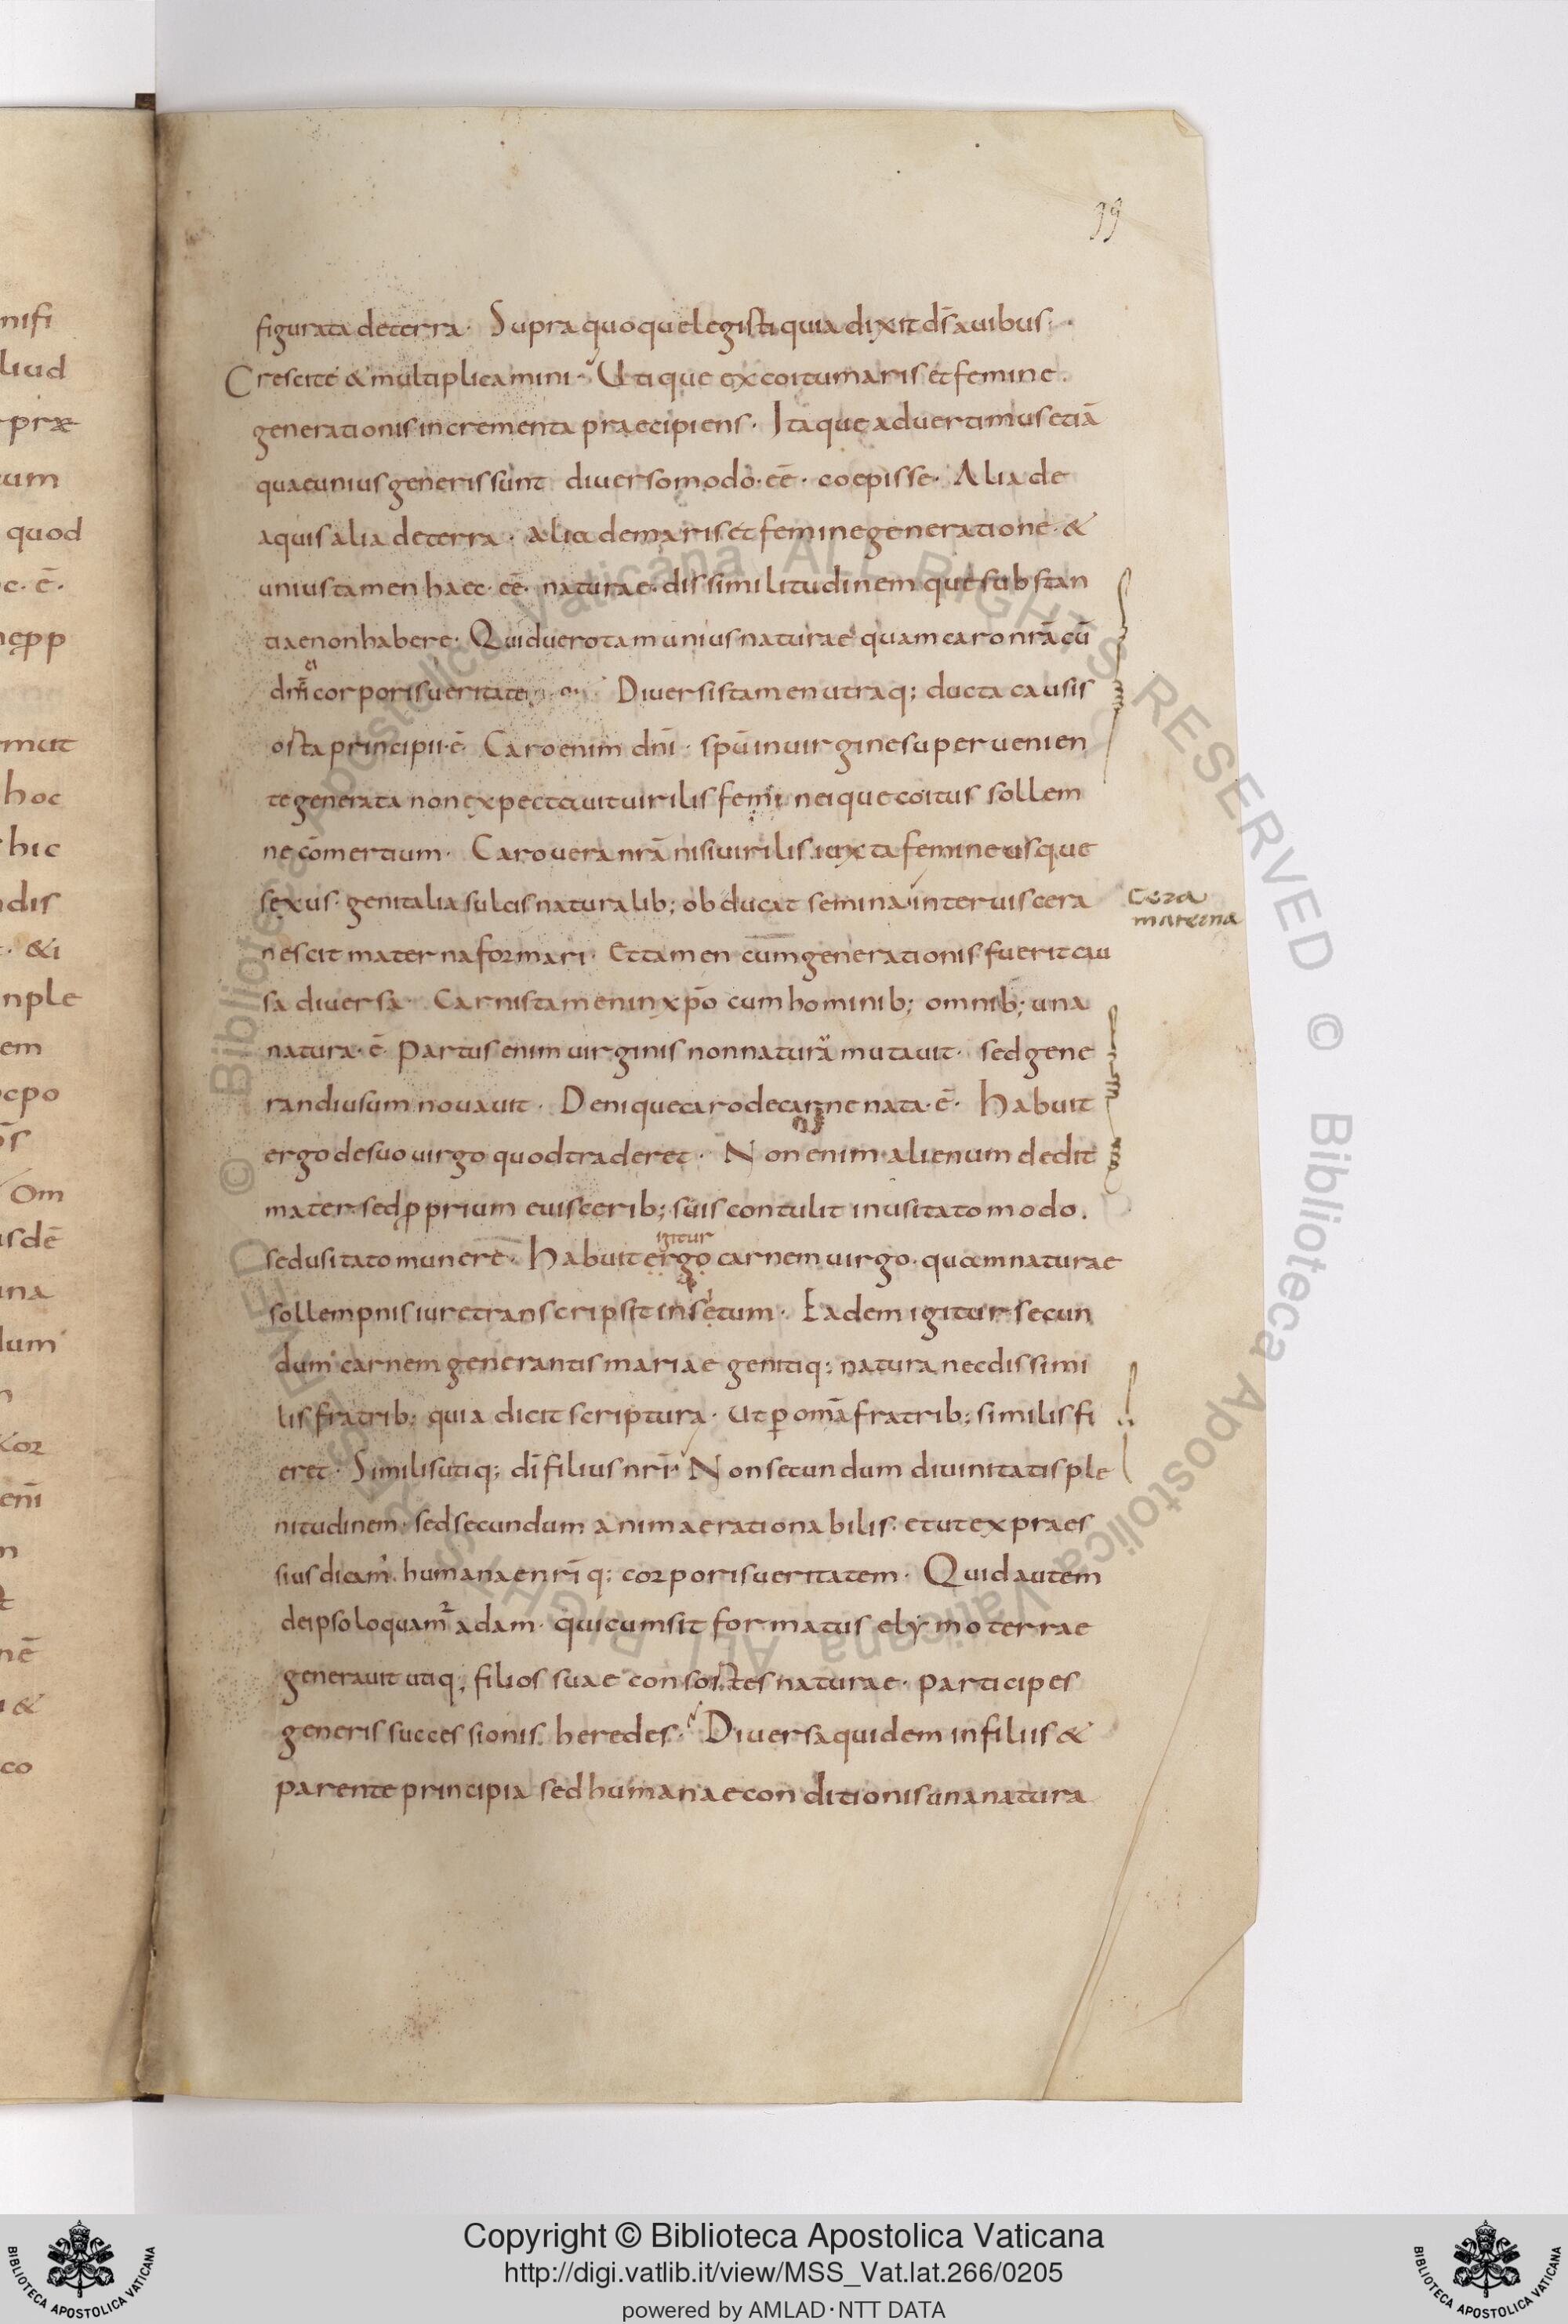 99
figurata de terra· Supra quoque legisti quia dixit ds̄ auibus·
Crescite & multiplicamini· Utique ex coitu maris et femine·
generationis incrementa praecipiens· Itaque aduertimus etiā
quae unius generis sunt diuerso modo· eē· coepisse· Alia de
aquis alia de terra· alia de maris et femine generatione· &
unius tamen haec· eē· naturae· dissimilitudinem que substan
tiae non habere· Quid uero tam unius naturae quam caro nrā cū
dn̄i corporis ueritate Diuersis tamen utraq; ducta causis
orta principii· ē· Caro enim dn̄i· spū in uirgine superuenien
te generata non expectauit uirilis femineique coitus sollem
ne cōmertium· Caro uera nrā nisi uirilis iuxta femine usque
sexus· genitalia sulcis naturalib; obducat semina inter uiscera
nescit materna formari· Et tamen cum generationis fuerit cau
sa diuersa· Carnis tamen in xp̄o cum hominib; omnib; una
natura· ē· Partus enim uirginis non naturā mutauit· sed gene
randi usum nouauit· Denique caro de carne nata· ē· Habuit
ergo de suo uirgo quod traderet· Non enim alienum dedit
mater sed p̄prium e uiscerib; suis contulit inusitato modo.
sed usitato munere· Habuit ergo carnem uirgo· quam naturae
igitur
sollempnis iure transcripsit in fetum· Eadem igitur secun
dum carnem generantis mariae genitiq; natura nec dissimi
lis fratrib; quia dicit scriptura· Ut p̄ omā fratrib; similis fi
eret· Similis utiq; dī filius nrī· Non secundum diuinitatis ple
nitudinem· sed secundum animae rationabilis· et ut expraes
sius dicam· humanae nrī q; corporis ueritatem· Quid autem
de ipso loquam̄ adam· qui cum sit formatus e lymo terrae
generauit utiq; filios suae consortes naturae· participes
generis successionis heredes· Diuersa quidem in filiis &
parente principia sed humanae conditionis una natura
cera
materna
Copyright © Biblioteca Apostolica Vaticana
http://digi.vatlib.it/view/MSS_Vat.lat.266/0205
powered by AMLAD·NTT DATA